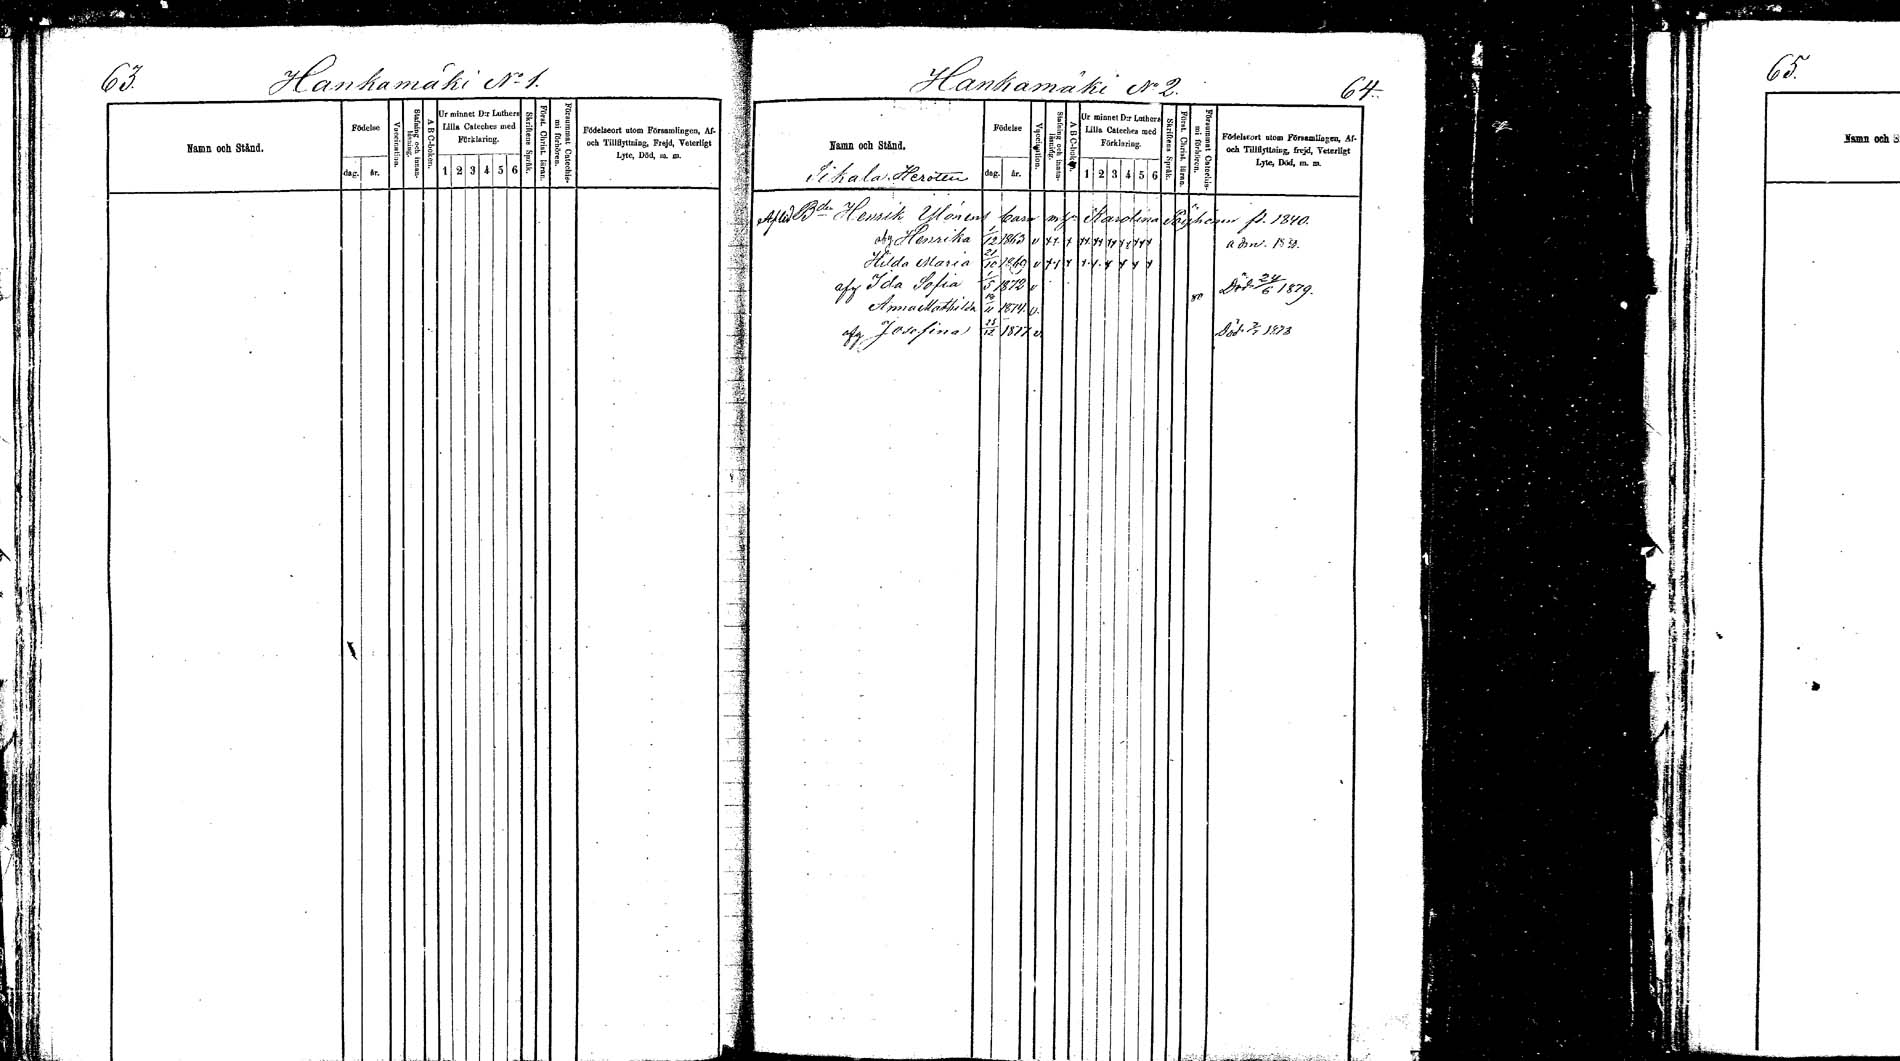 63.
Hankamäki No 1.
Namn och Stånd.
Födelse
dag.
år.
Vaccination.
Stafning och innan-
läsning.
A B C-boken.
Ur minnet D:r Luthers
Lilla Cateches med
Förklaring.
1 2 3 4 5 6
Skriftens Språk.
Först. Christ. läran.
Försummat Catechis-
mi förhören.
Födelseort utom Församlingen, Af-
och Tillflyttning, Frejd, Veterligt
Lyte, Död, m. m.
Hankamäki No 2.
64.
Namn och Stånd.
Födelse
dag.
år.
Vaccination.
Stafning och innan-
läsning.
A B C-boken.
Ur minnet D:r Luthers
Lilla Cateches med
Förklaring.
1 2 3 4 5 6
Skriftens Språk.
Först. Christ. läran.
Försummat Catechis-
mi förhören.
Födelseort utom Församlingen, Af-
och Tillflyttning, frejd, Veterligt
Lyte, Död, m. m.
Sikala Heroten
Aflid Bden Henrik Ylönens barn Karolina f. 1840.
Henrika 1/12 1863 v
Hilda Maria 21/10 1869 v
Ida Sofia 1/5 1872 v Död 24/6 1879.
Anna Mathilda 1874. v. 80
Josefina 1877 v. Död
65.
Namn och S